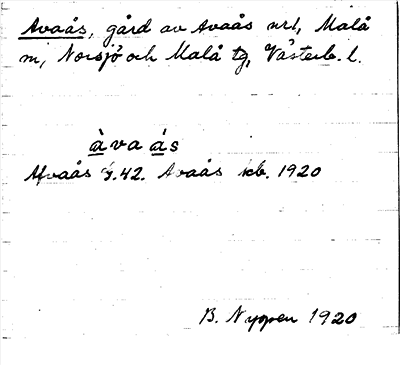 Avaås, gård av Avaås nrl, Malå
m, Norsjö och Malå tg, Västerb. l.
àva ás
Afvaås s. 42. Avaås kb. 1920
B. Nyman 1920